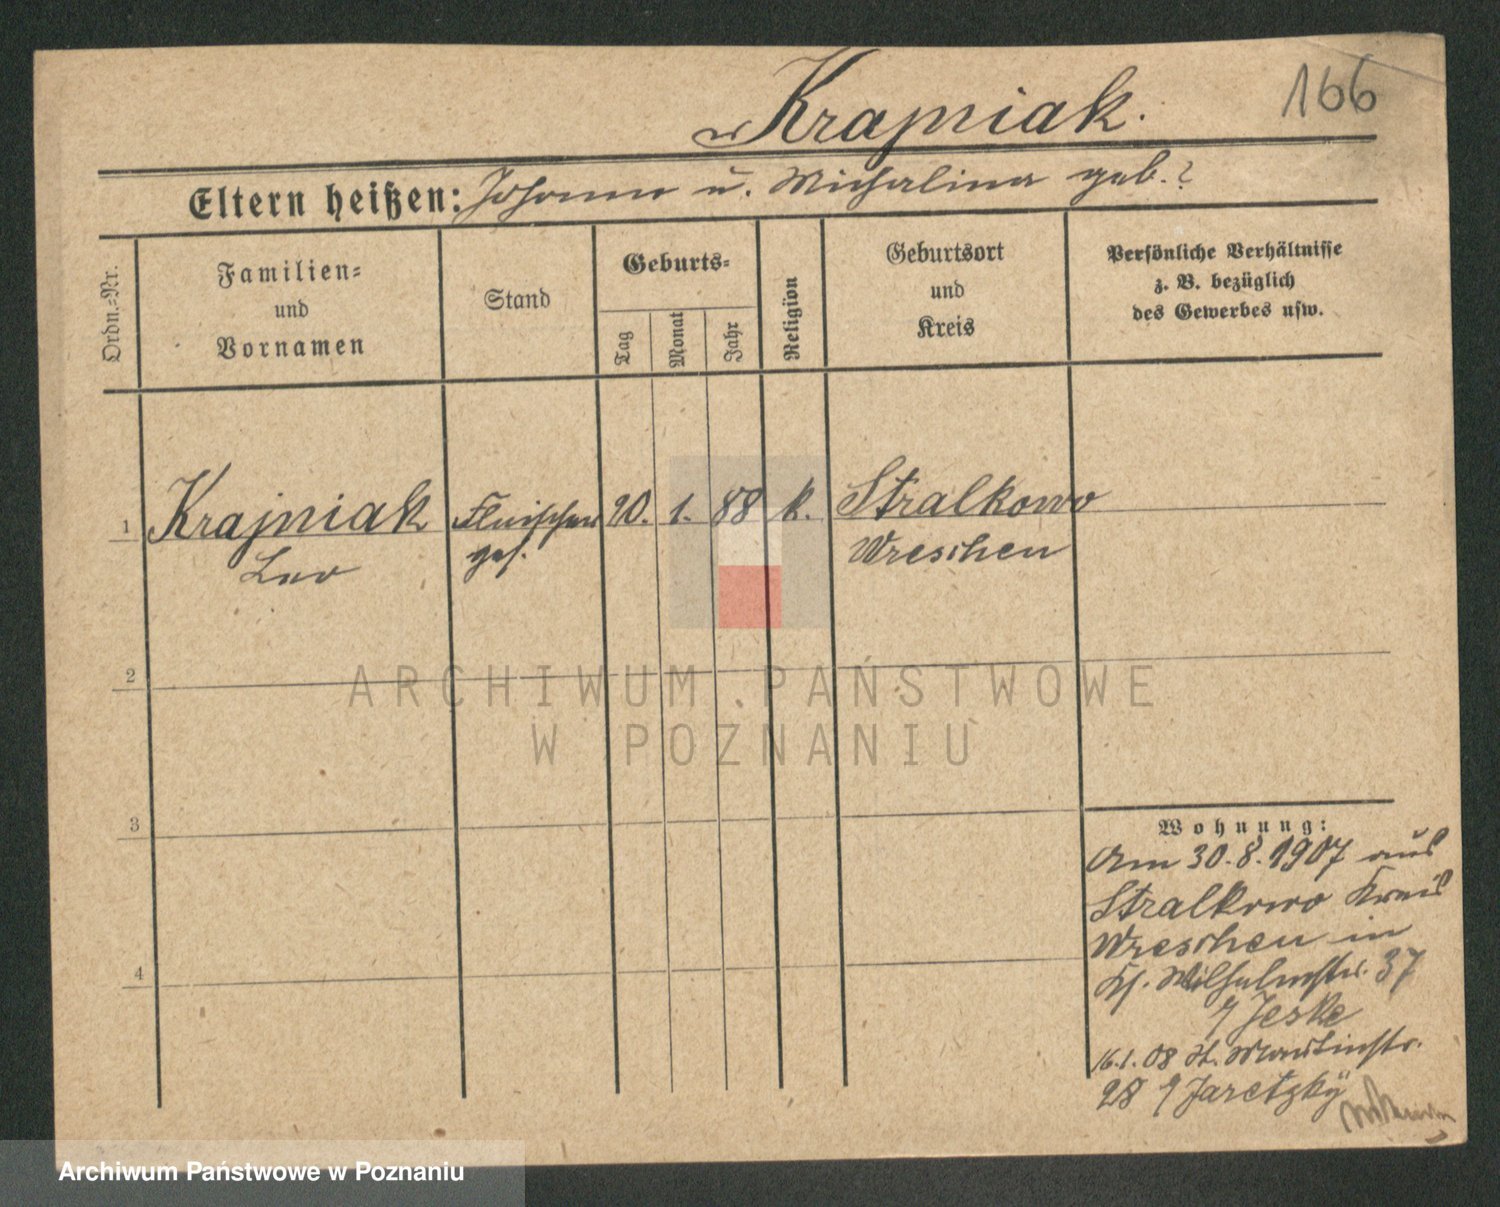 Krajniak.
166
Eltern heißen: Johann u. Michalina geb. ?
Ordn.=Nr.
Familien=
und
Vornamen
Stand
Geburts=
Tag
Monat
Jahr
Religion
Geburtsort
und
Kreis
Persönliche Verhältnisse
z. B. bezüglich
des Gewerbes usw.
1 Krajniak Fleischer 20. 1. 88 k. Stralkowo
Leo ges. Wreschen
2
3
4
Wohnung:
Am 30.8.1907 aus
Stralkowo Kreis
Wreschen in
Wilhelmstr. 37
Jeske
16.1.08 St. Martinstr.
28 Jaretzky
ARCHIWUM PAŃSTWOWE
W POZNANIU
Archiwum Państwowe w Poznaniu